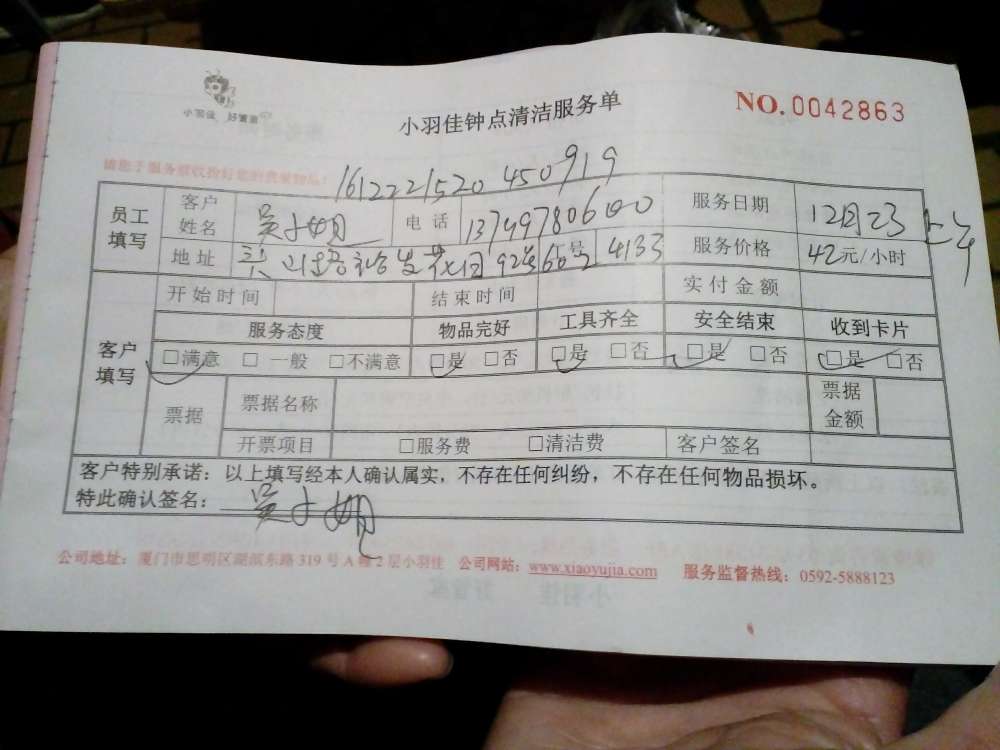 小羽佳 好管家
小羽佳钟点清洁服务单
NO.0042863
请您于服务前收拾好您的贵重物品:
1612221520450919
员工填写
客户姓名 吴小姐 电话 服务日期 12月23 上午
地址 92号 66号 4133 服务价格 42元/小时
客户填写
开始时间 结束时间 实付金额
服务态度 物品完好 工具齐全 安全结束 收到卡片
□满意 □一般 □不满意 □是 □否 □是 □否 □是 □否 □是 □否
票据 票据名称 票据金额
开票项目 □服务费 □清洁费 客户签名
客户特别承诺:以上填写经本人确认属实,不存在任何纠纷,不存在任何物品损坏。
特此确认签名: 吴小姐
公司地址:厦门市思明区湖滨东路319号A幢2层小羽佳 公司网站:www.xiaoyujia.com 服务监督热线:0592-5888123